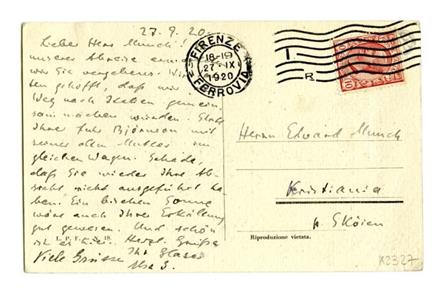 27.9.20
Lieber Herr Munch! Vor
unserer Abreise
wir Sie vergebens. Wir
ten gehofft, daß wir
Weg nach Italien gemein-
sam machen würden. Statt
Ihrer fuhr Björnson mit
seiner alten Mutter im
gleichen Wagen. Schade,
daß Sie wieder Ihre Ab-
sicht nicht ausgeführt ha-
ben. Ein bischen Sonne
wäre auch Ihrer Erkältung
gut gewesen. Und schön
ist es hier. Herzl. Grüße
Ihr Glaser
Viele Grüsse
Ihre E.
FIRENZE
18-19
27·IX
1920
FERROVIA
Herrn Edvard Munch
Kristiania
p. Sköien
Riproduzione vietata.